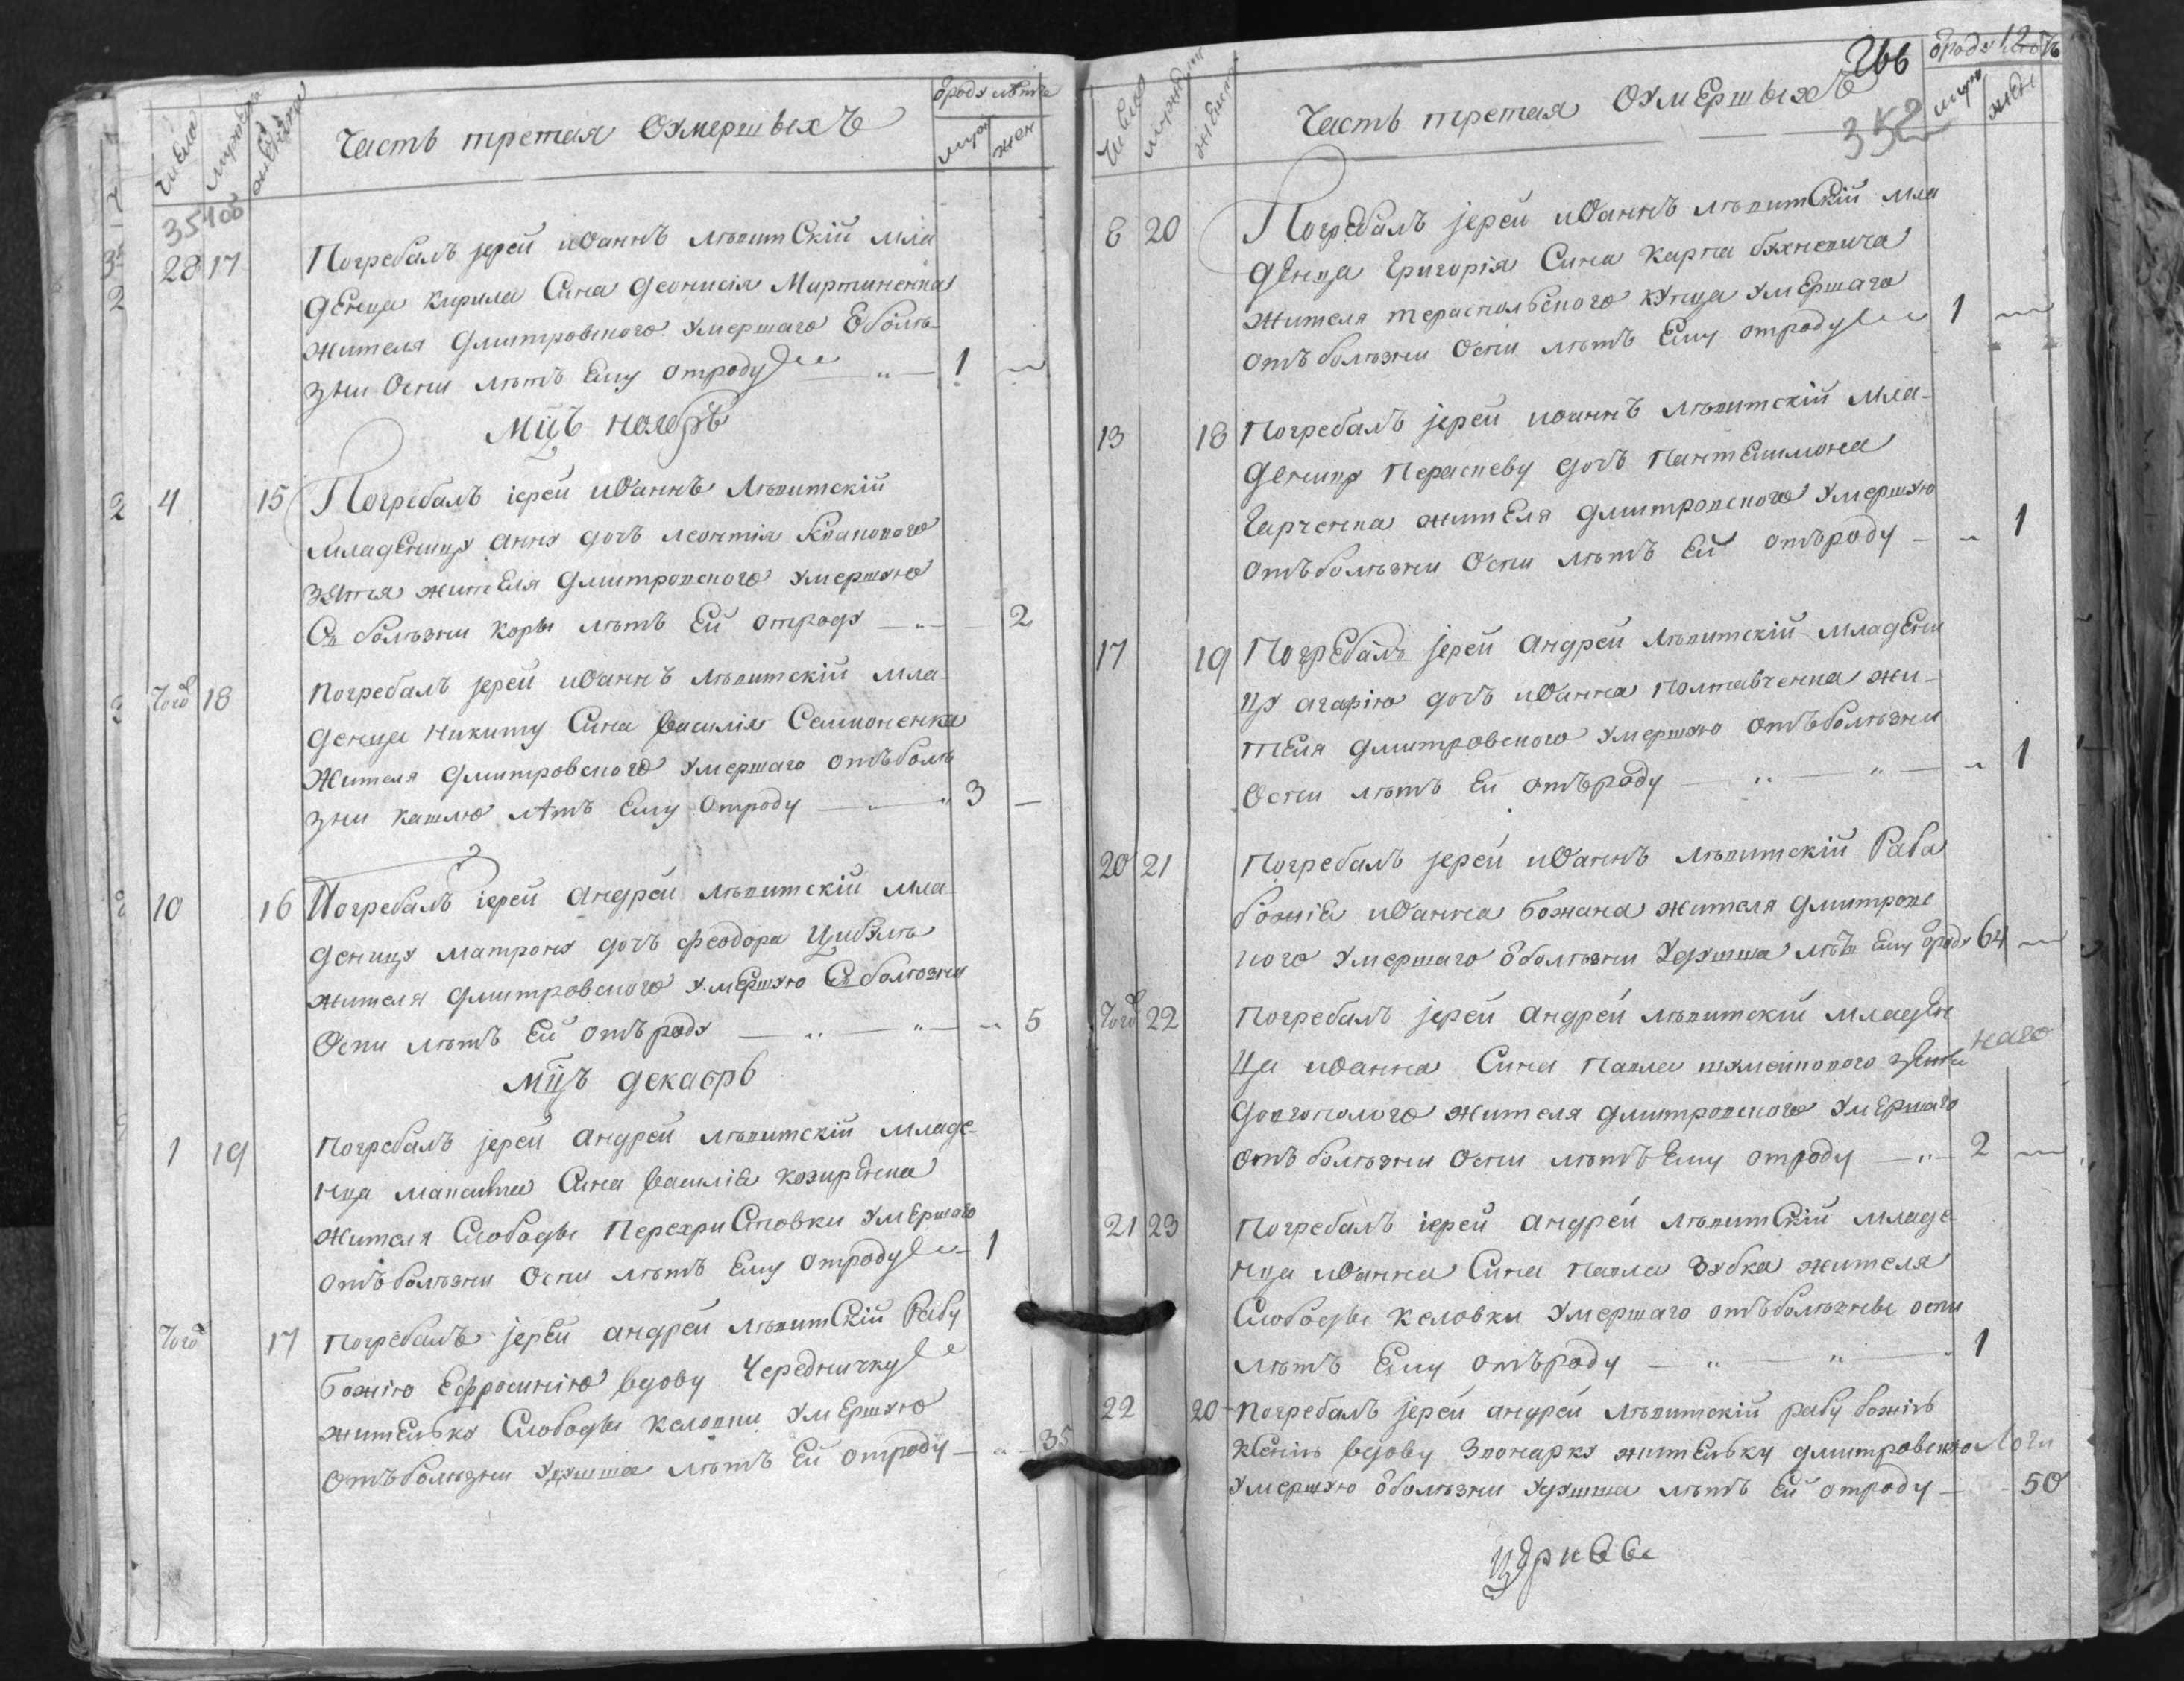 Числа
мужеска
женска
Часть третая Оумершыхъ
ѿроду лѣта
муж
жен
354об
28 17
Погребалъ јерей иѡаннъ лѣвитскій мла
денца кирила Сина деонисія Мартиненка
жителя дмитровского умершаго ѿболѣ
зни Оспи лѣтъ Ему отроду 1
Мцъ ноябрь
4 15 Погребалъ іерей иѡаннъ Лѣвитскій
младеницу анну дочъ леонтія
зятя жителя дмитровского умершую
Съ болѣзни коры лѣтъ Ей отроду 2
Того 18 погребалъ јерей иѡаннъ лѣвитскій мла
денца никиту Сина василія Семионенка
Жителя дмитровского умершаго отъболѣ
зни кашлю лѣтъ Ему отроду 3
10 16 Погребалъ іерей андрей лѣвитскій мла
деницу матрону дочъ феодора Цибулѣ
жителя дмитровского умершую Съ болѣзни
Оспи лѣтъ Ей отъроду 5
Мцъ декабрь
1 19 погребалъ јерей андрей лѣвитскій младе-
нца максима Сина василія
жителя Слободы Перехристовки умершаго
отъболѣзни Оспи лѣтъ Ему отроду 1
Того 17 погребалъ јерей андрей лѣвитскій Рабу
божію Ефросинію вдову Чередничку
жителку Слободы келовки умершую
отъболѣзни удушша лѣтъ Ей отроду 35
266
352
Числа
мужеска
женска
Часть третая Оумершыхъ
ѿроду лѣтъ
12
муж
жен
6 20 Погребалъ јерей иѡаннъ лѣвитскій мла
денца григорія Сина карпа
жителя тераспольского купца умершаго
отъ болѣзни Оспи лѣтъ Ему отроду 1
13 18 погребалъ јерей иѡаннъ лѣвитскій мла-
деницу Пераскеву дочъ пантелимона
Гарченка жителя дмитровского умершую
отъболѣзни Оспи лѣтъ Ей отъроду 1
17 19 Погребалъ јерей андрей лѣвитскій младени
цу агафію дочъ иѡанна полтавченка жи-
теля дмитровского умершую отъболѣзни
Оспи лѣтъ Ей отъроду 1
20 21 погребалъ јерей иѡаннъ лѣвитскій Раба
божія иѡанна божана жителя дмитровс
кого умершаго ѿболѣзни Удушша лѣтъ Ему ѿроду 64
Того 22 погребалъ јерей андрей лѣвитскій младен
ца иѡанна Сина павла
долгополого жителя дмитровского умершаго
отъ болѣзни Оспи лѣтъ Ему отроду 2
21 23 погребалъ іерей андрей лѣвитскій младе-
нца иѡанна Сина павла Зубка жителя
Слободы келовки умершаго отъболѣзны оспи
лѣтъ Ему отъроду 1
22 20 погребалъ јерей андрей лѣвитскій рабу божію
ксенію вдову Звонарку жителку дмитровскую
умершую ѿболѣзни удушша лѣтъ Ей отроду 50